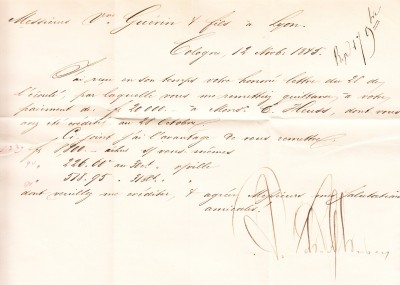 Messieurs Vve Guerin & fils à Lyon.
Rep. 17 9bre
Cologne, 12 Novb. 1845.
J'ai reçu en son temps votre honoré lettre du 21 de
l'écoulé, par laquelle vous me remettez quittance de votre
paiement de f 20 000.- à Monsr. C. dont vous
avez été crédités au 21 Octobre.
Ci joint j'ai l'avantage de vous remettre
f 1800.- sur vous mêmes
" 226.60
" 518.95
dont veuillez me créditer, & agréer Messieurs mes Salutations
amicales.